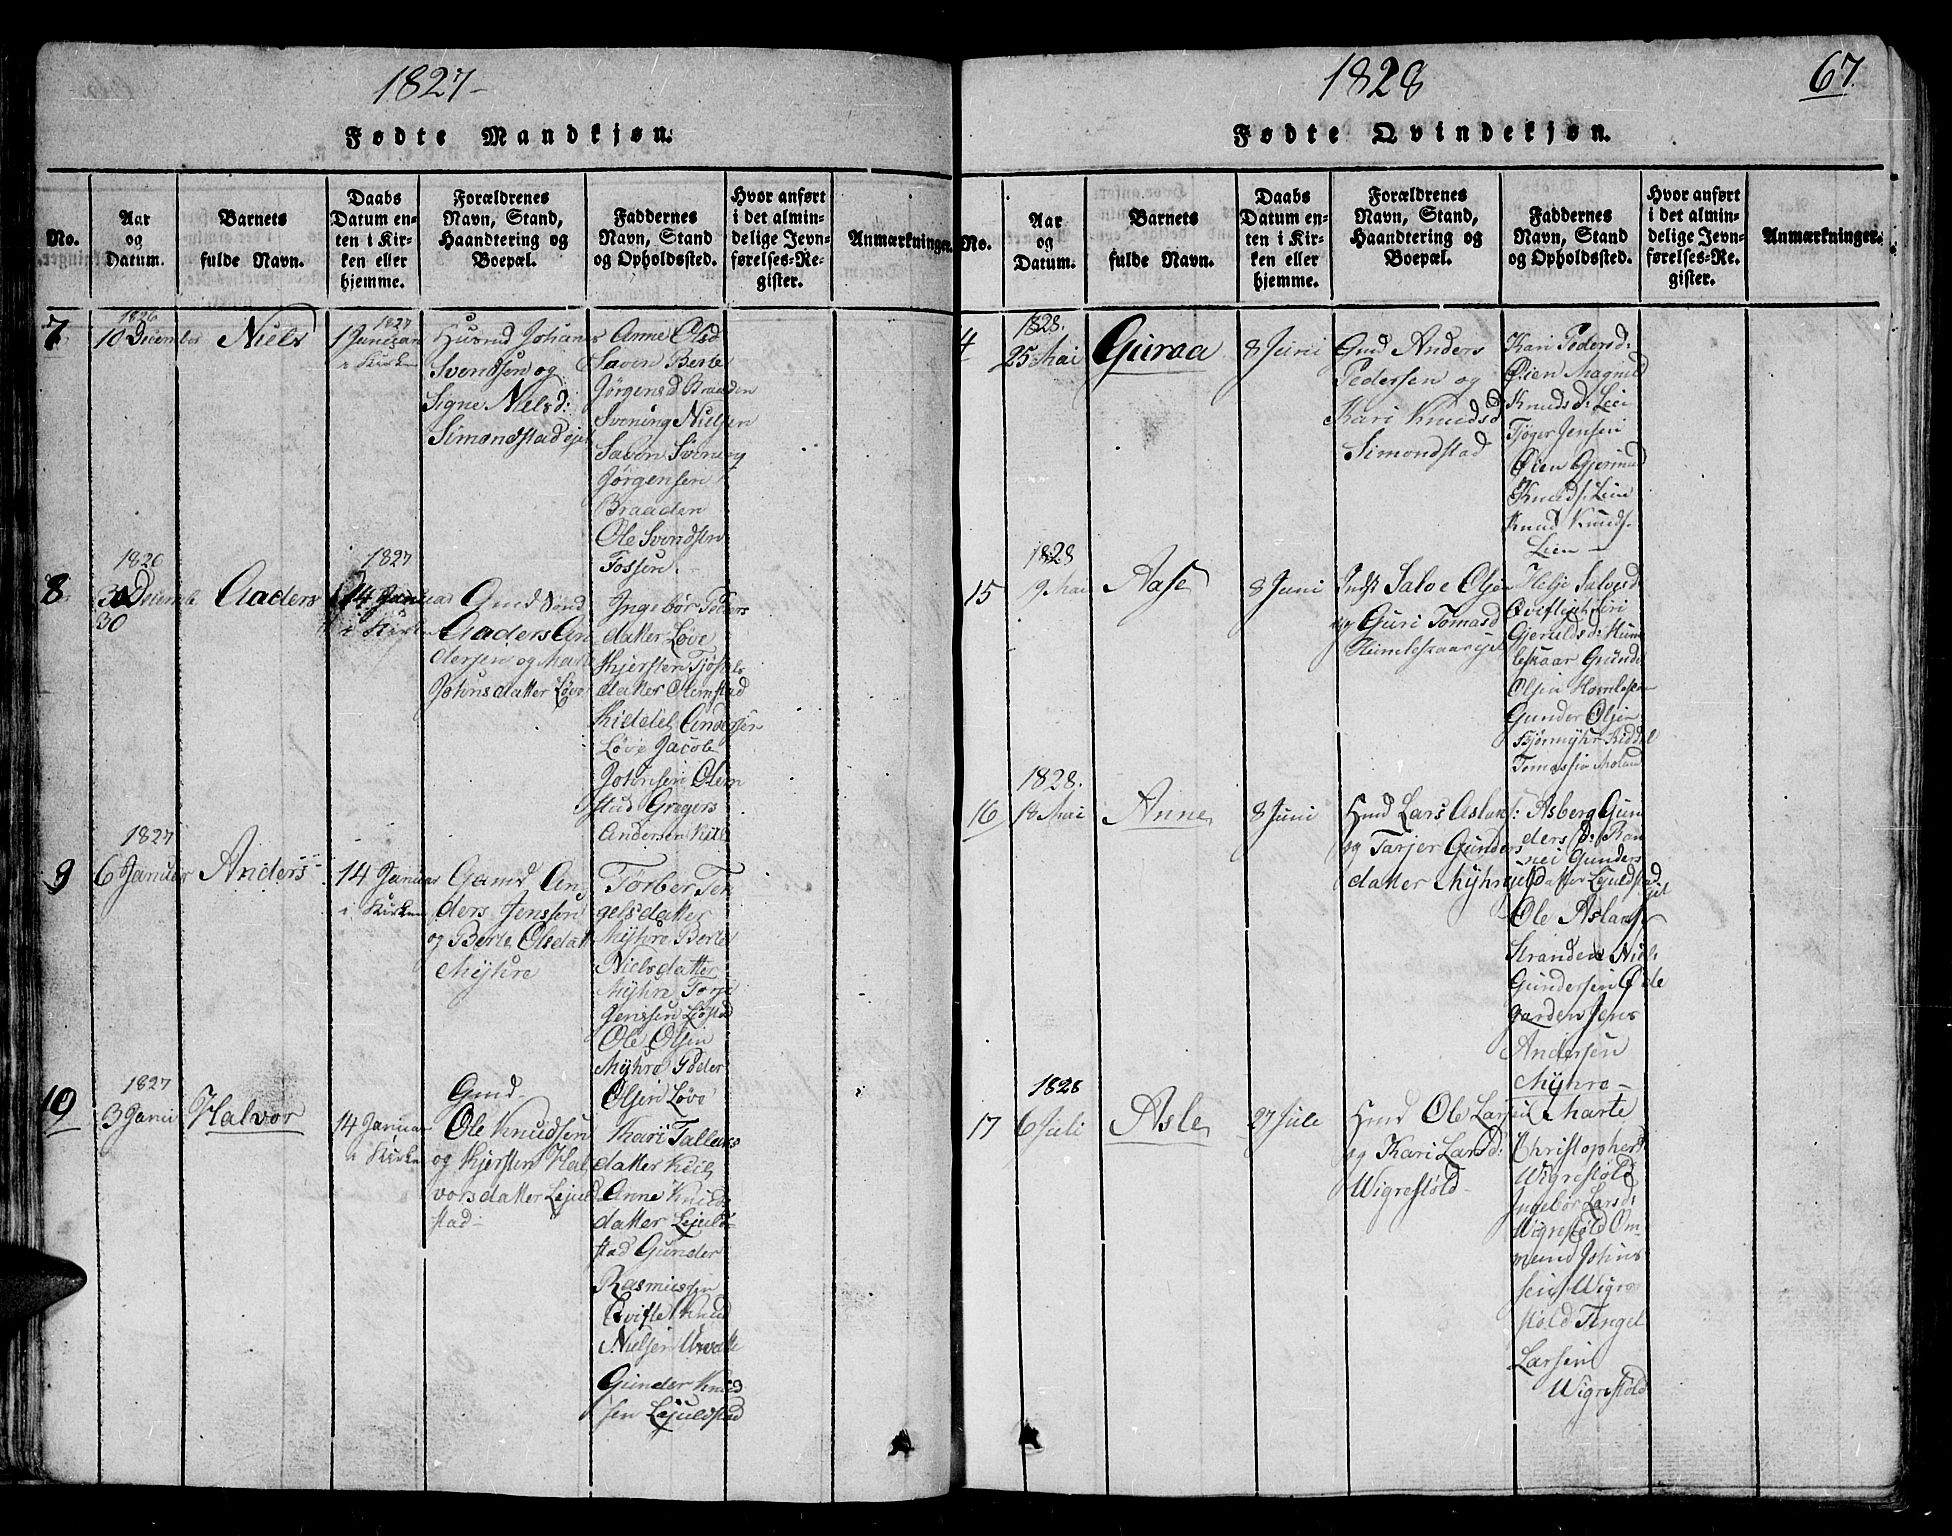 1827
Fødte Mandkjøn.
No.
Aar
og
Datum.
Barnets
fulde Navn.
Daabs
Datum en-
ten i Kir-
ken eller
hjemme.
Forældrenes
Navn, Stand,
Haandtering og
Boepæl.
Faddernes
Navn, Stand
og Opholdssted.
Hvor anført
i det almin-
delige Jevn-
førelses-Re-
gister.
Anmærkninger.
7
1826
10 December
Niels
1827
1 Januar
i Kirken
Johannes
Svendsen og
Signe Nielsd:
Simondstad ejet
Anne Olsd
Saven Berte
Jørgensd Braaden
Svening Nielsen
Saven Svening
Jørgensen
Braaden
Ole Svendsen
Fossen
8
1826
30
Aaders
1827
14 Januar
i Kirken
Gmd
Aaders An
dersen og
Johnsdatter Løve
Ingebør Peders
datter Løve
Kjersten
datter Olemstad
Kiddel Andersen
Løve Jacob
Johnsen Olem
stad Gregers
Andersen
9
1827
6 Januar
Anders
14 Januar
i Kirken
Gamd An
ders Jenssen
og Berte Olsdatt
Myhre
Torber Ten
gelsdatter
Myhre Berte
Nielsdatter
Myhre
Jenssen
Ole Olsen
Myhre Peder
Olsen Løve
10
1827
3 Janu
Halvor
14 Januar
i Kirken
Gmd
Ole Knudsen
og Kjersten Hal
vorsdatter Lejuld
stad
Kari Tallaks
datter
Anne Knuds
datter Lejuld
stad Gunder
Rasmussen
Knud
Nielsen
Gunder Knud
sen Lejuldstad
1828
67.
Fødte Qvindekjøn.
No.
Aar
og
Datum.
Barnets
fulde Navn.
Daabs
Datum en-
ten i Kir-
ken eller
hjemme.
Forældrenes
Navn, Stand,
Haandtering og
Boepæl.
Faddernes
Navn, Stand
og Opholdssted.
Hvor anført
i det almin-
delige Jevn-
førelses-Re-
gister.
Anmærkninger.
4
1828.
25 Mai
Guraa
8 Juni
Gmd Anders
Pedersen og
Kari Knudsd
Simondstad
Kari Pedersd:
Øien Magnild
Knudsd: Lien
Jensen
Øien
Knuds: Lien
Knud Knuds.
Lien
15
1828
9 Mai
Aase
8 Juni
Salve Olsen
og Guri Tomasd
Salvesd
Gunder Olsen
16
1828.
18 Mai
Anne
8 Juni
Hmd Lars Aslaks:
og Tarjer Gunders
datter Myhre
Asberg Gun
ders d: Ran
nei Gunders
datter Lejuldstad
Ole Aslaks
Stranden Niels
Gundersen Øde
garden Jens
Andersen
Myhre
17
1828
6 Juli
Asle
27 Jule
Hmd Ole Larsen
og Kari Larsd:
Wigrestøld
Marte
Christophers
Wigrestøld
Ingebør Larsd:
Wigrestøld Om
mund Johns
sen Wigre
støld Tengel
Larsen
Wigrestøld